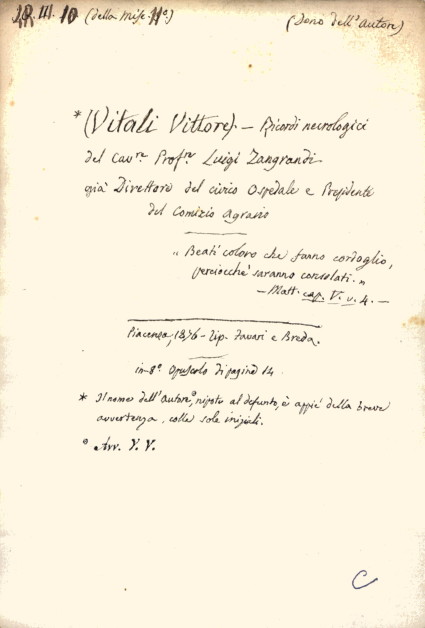 IR. III. 10 (della Misc. 11ª) (Dono dell'autore)
*(Vitali Vittore). — Ricordi necrologici
del Cavre. Profre. Luigi Zangrandi
già Direttore del civico Ospedale e Presidente
del Comizio Agrario
„ Beati coloro che fanno cordoglio,
perciocchè saranno consolati. „
— Matt. cap. V. v. 4. —
Piacenza, 1876 - Tip. Favari e Breda.
in-8º Opuscolo di pagine 14
* Il nome dell'autore,º nipote al defunto, è appiè della breve
avvertenza, colle sole iniziali.
º Avv. V. V.
C